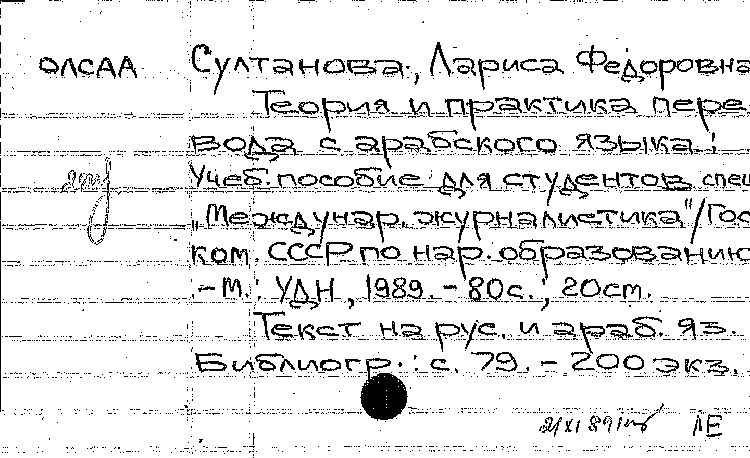 ОЛСАА Султанова, Лариса Федоровна
Теория и практика пере
вода с арабского языка:
Учеб. пособие для студентов спец
„Междунар. журналистика"/Гос
ком. СССР по нар. образованию
.-М.: УДН, 1989.-80с.; 20cm.
Текст на рус. и араб. яз.
Библиогр.: с. 79.-200 экз.
ЛЕ